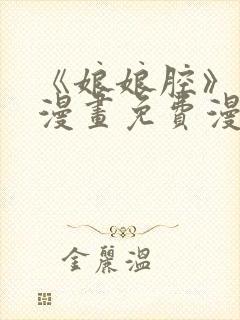 《娘娘腔》
漫畫免費漫
金麗溫